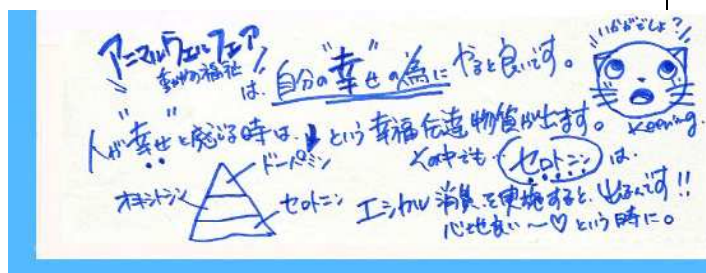 アニマルウェルフェア
動物の福祉
は、自分の"幸"せの為にやると良いです。
いかがでしょ?
Keeping.
人が"幸せ"と感じる時は、↓という幸福伝達物質が出ます。
ドーパミン
その中でも…セロトニンは、
オキシトシン
セロトニン
エシカル消費を実施すると、出るんです!!
心地良い〜♡という時に。